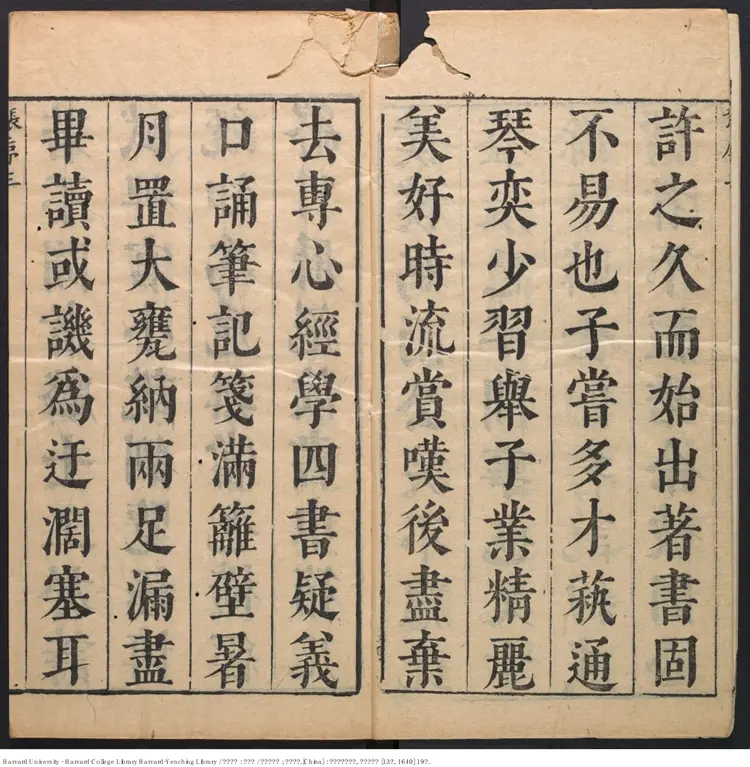 許之久而始出著書固
不易也子嘗多才蓺通
琴奕少習舉子業精麗
美好時流賞嘆後盡棄
去專心經學四書疑義
口誦筆記箋滿籬壁暑
月置大甕納兩足漏盡
畢讀或譏為迂濶塞耳
張序三
Harvard University - Harvard College Library Harvard-Yenching Library / ???? : ??? / ????? ; ????. [China] : ???????, ????? [13?, 1640] 19?.